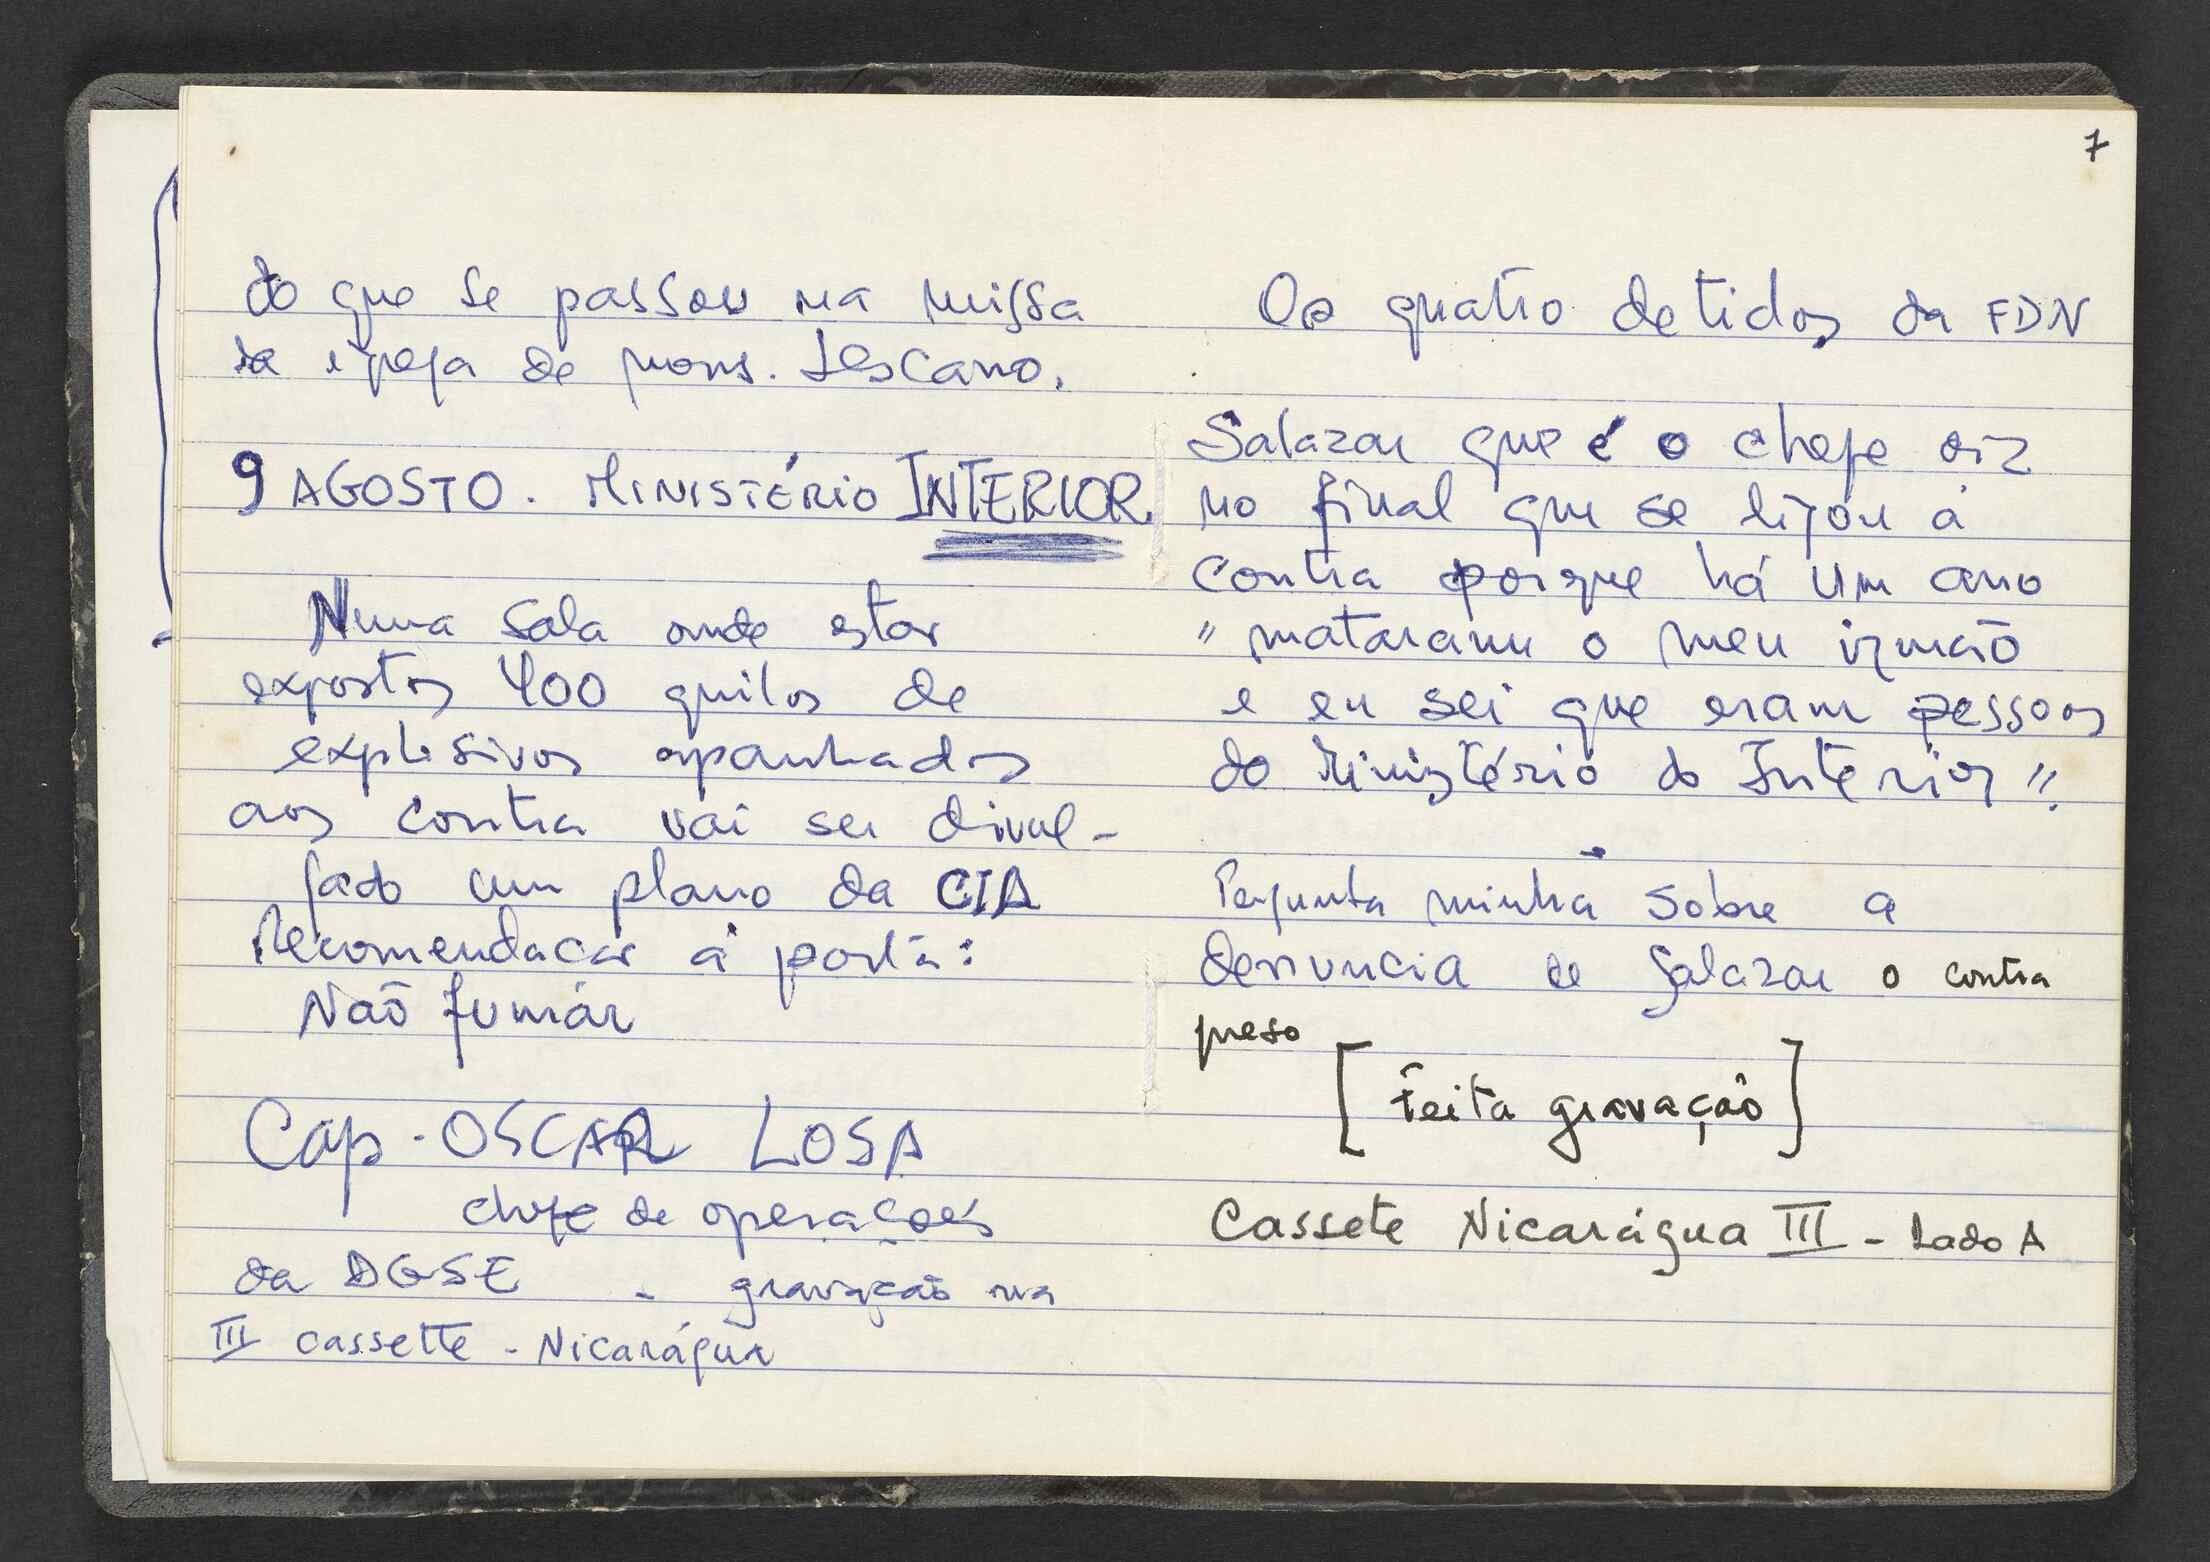 do que se passou na missa
da igreja de mons. Lescano.
9 AGOSTO. MINISTÉRIO INTERIOR.
Numa sala onde estão
expostos 400 quilos de
explosivos apanhados
aos contra vai ser divul-
gado um plano da CIA
Recomendação à porta:
Não fumar
Cap. OSCAR LOSA
chefe de operações
da DGSE - gravação na
III cassette - Nicarágua
7
Os quatro detidos da FDN
Salazar que é o chefe diz
no final que se ligou à
contra porque há um ano
"mataram o meu irmão
e eu sei que eram pessoas
do Ministério do Interior".
Pergunta minha sobre a
denuncia de Salazar o contra
preso
[Feita gravação]
Cassete Nicarágua III - Lado A